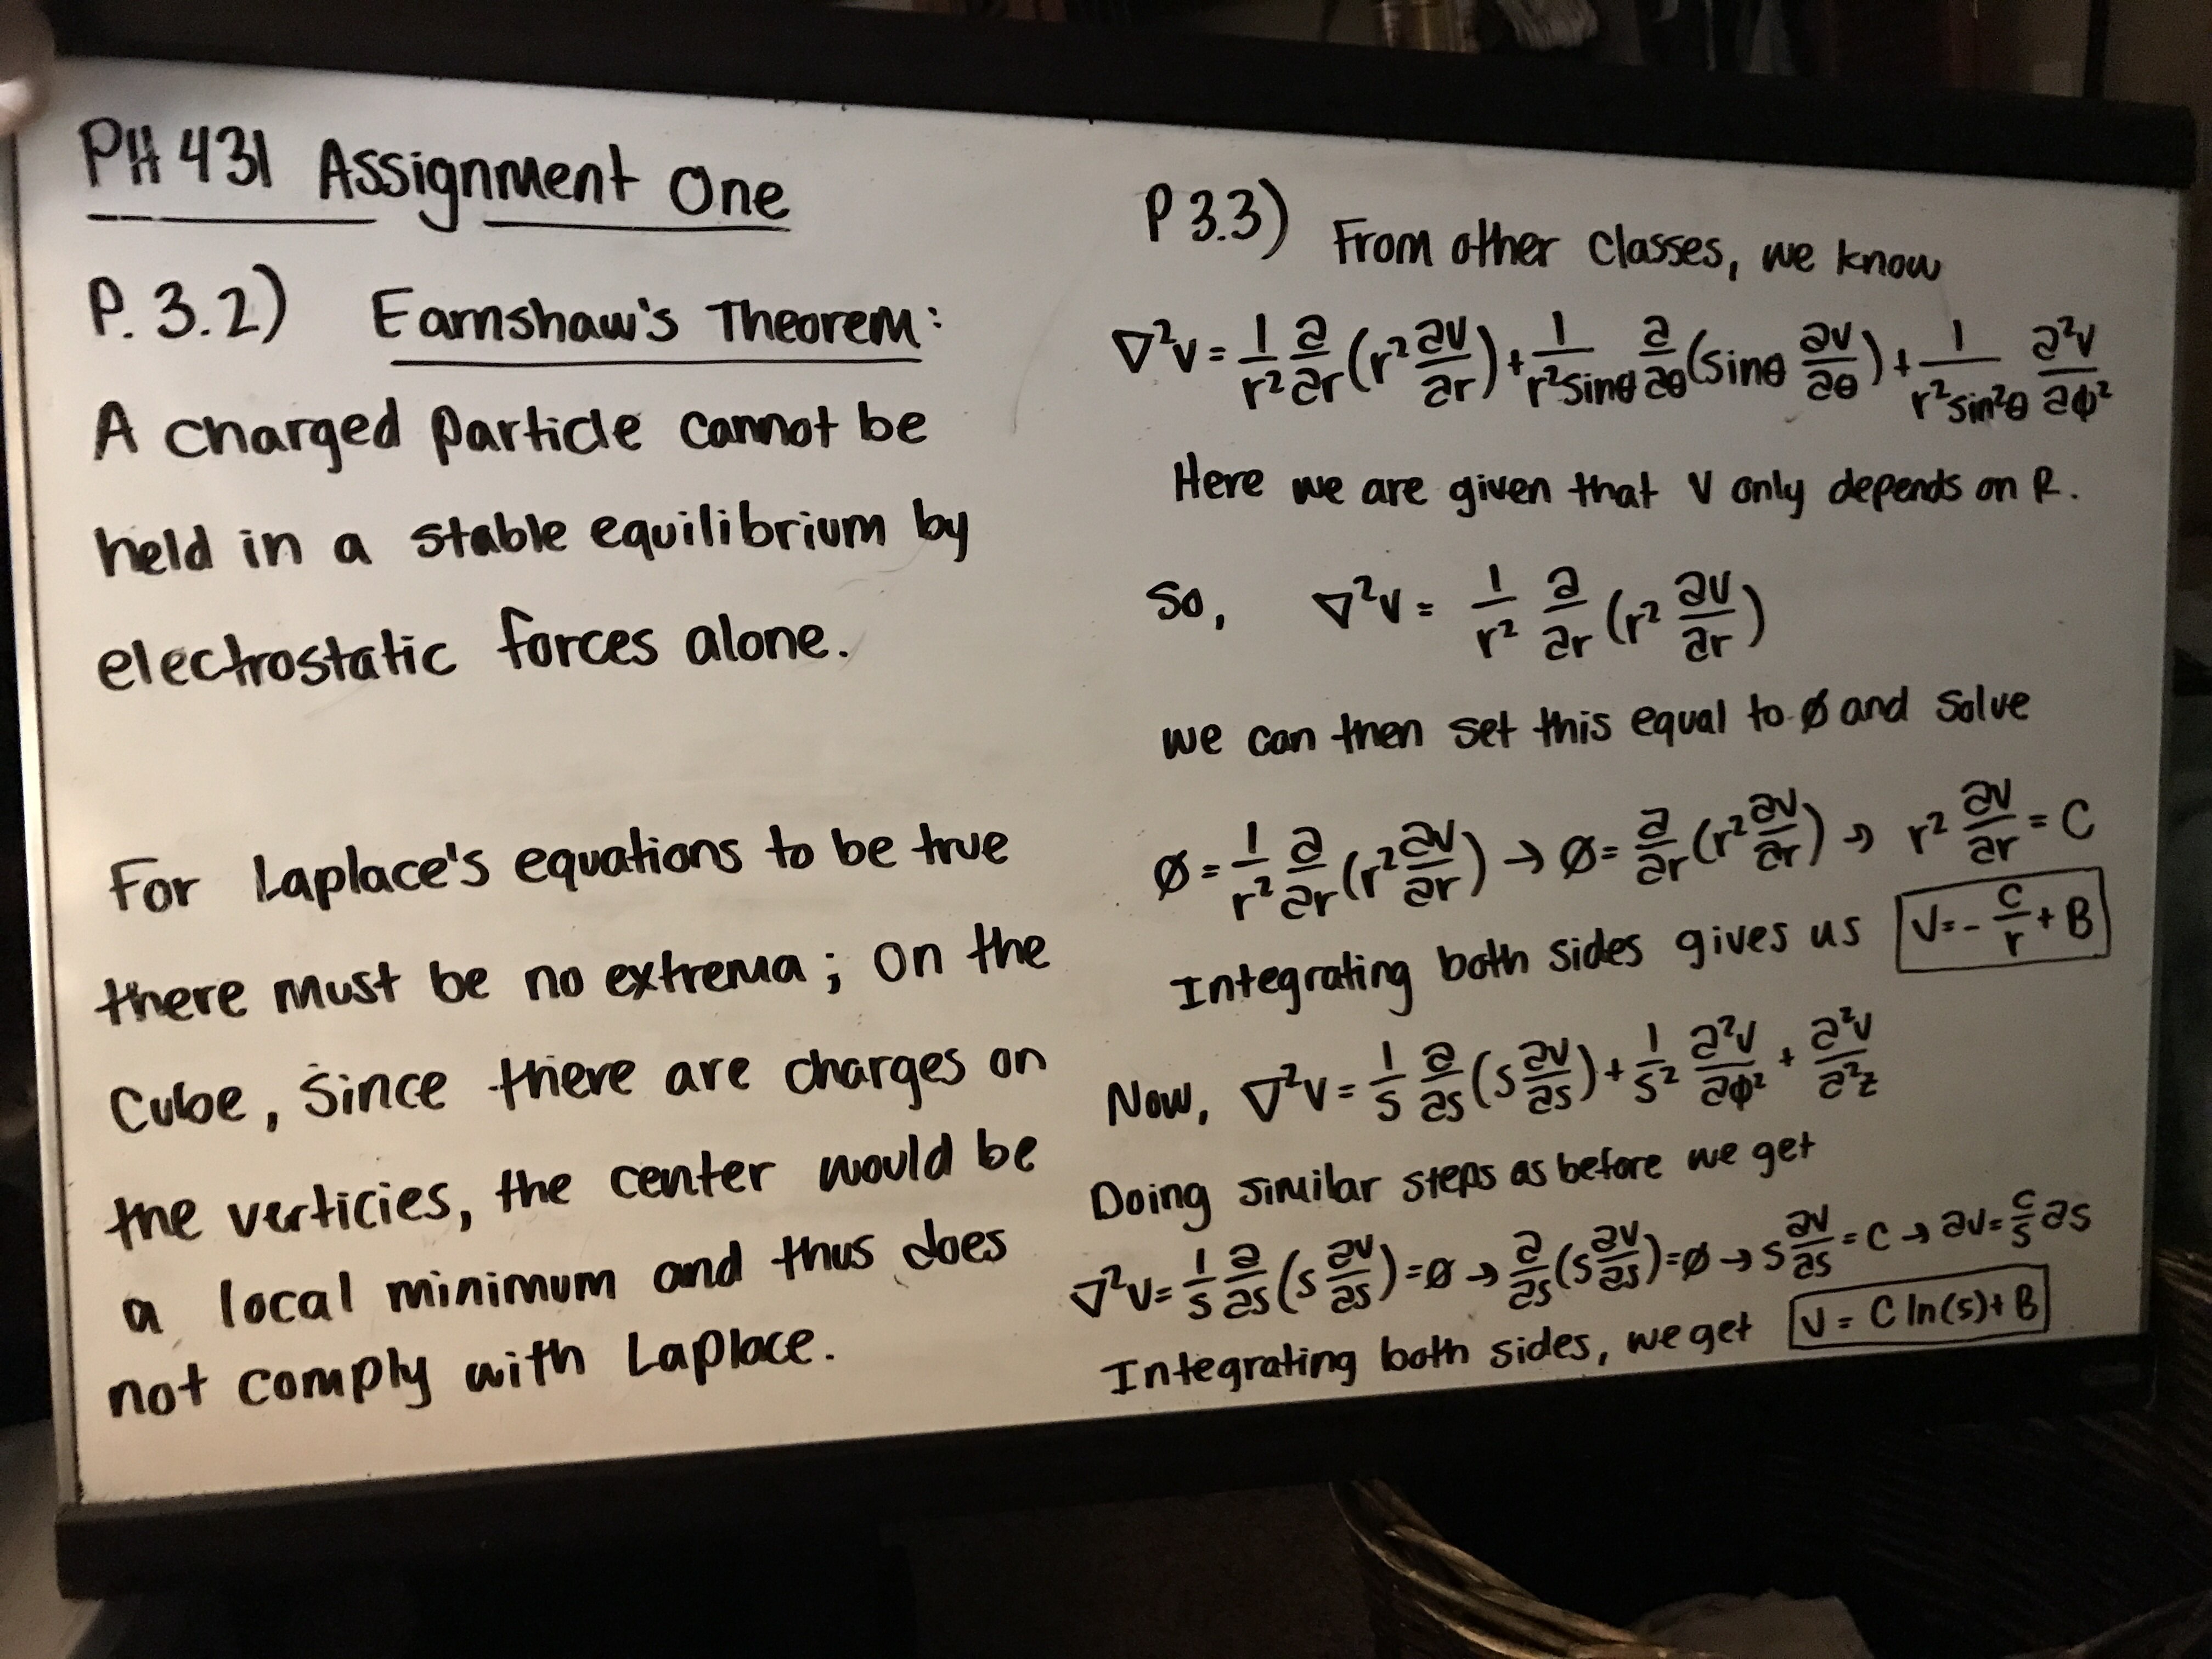 PH 431 Assignment One
P. 3.2) Earnshaw's Theorem:
A charged particle cannot be
held in a stable equilibrium by
electrostatic forces alone.
For Laplace's equations to be true
there must be no extrema; on the
cube, since there are charges on
the verticies, the center would be
a local minimum and thus does
not comply with Laplace.
P 3.3) From other classes, we know
∇²V = 1/r² ∂/∂r (r² ∂V/∂r) + 1/(r² sinθ) ∂/∂θ (sinθ ∂V/∂θ) + 1/(r² sin²θ) ∂²V/∂φ²
Here we are given that V only depends on R.
So, ∇²V = 1/r² ∂/∂r (r² ∂V/∂r)
we can then set this equal to Ø and solve
Ø = 1/r² ∂/∂r (r² ∂V/∂r) → Ø = ∂/∂r (r² ∂V/∂r) → r² ∂V/∂r = C
Integrating both sides gives us V = - C/r + B
Now, ∇²V = 1/s ∂/∂s (s ∂V/∂s) + 1/s² ∂²V/∂φ² + ∂²V/∂²z
Doing similar steps as before we get
∇²V = 1/s ∂/∂s (s ∂V/∂s) = Ø → ∂/∂s (s ∂V/∂s) = Ø → s ∂V/∂s = C → ∂V = C/s ∂s
Integrating both sides, we get V = C ln(s) + B